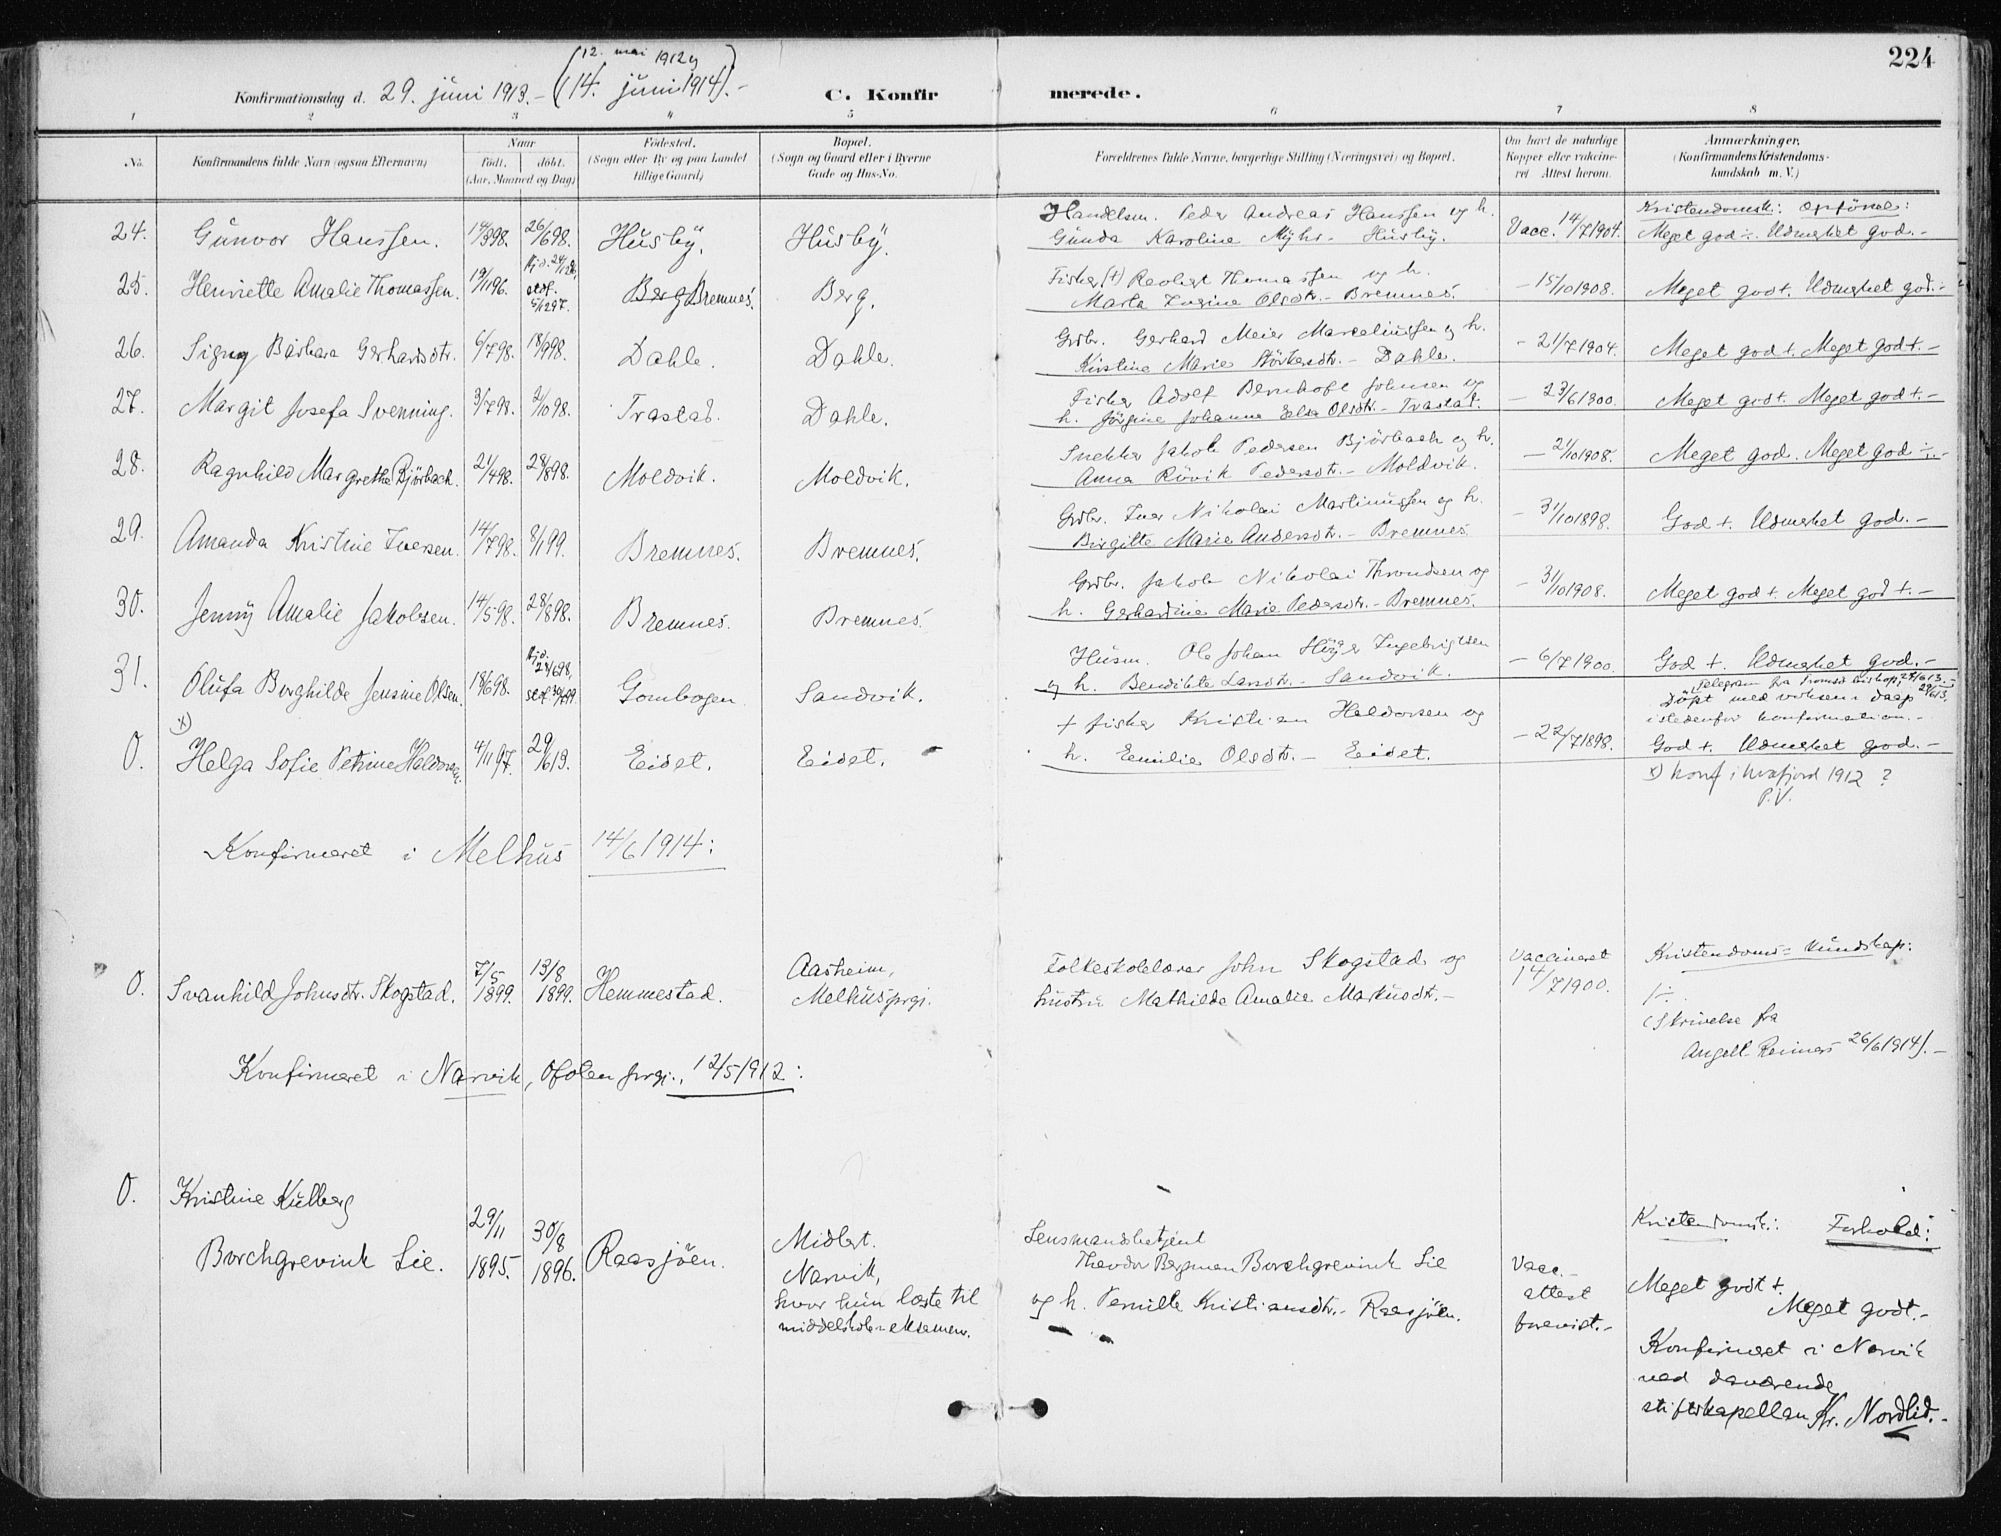 224
(12. mai 1912 og
Konfirmationsdag d. 29. juni 1913. - (14. juni 1914). - C. Konfirmerede.
1 2 3 4 5 6 7 8
No. Konfirmandens fulde Navn (ogsaa Efternavn) Naar født. døbt. (Aar, Maaned og Dag) Fødested. (Sogn eller By og paa Landet tillige Gaard) Bopæl. (Sogn og Gaard eller i Byerne Gade og Hus-No. Forældrenes fulde Navne, borgerlige Stilling (Næringsvei) og Bopæl. Om havt de naturlige Kopper eller vakcineret. Attest herom. Anmærkninger. (Konfirmandens Kristendomskundskab m. V.)
Kristendomsk: Opførsel:
24. Gunvor Hanssen. 14/3 98. 26/6 98. Husby. Husby. Handelsm. Peder Andreas Hanssen og h. Gunda Karoline Myhr - Husby. Vacc. 14/7 1904. Meget god ÷. Udmerket god. -
25. Henriette Amalie Thomassen. 19/11 96. Hjd. 24/12 96, stdf. 5/12 97. Berg Bremnes. Berg. Fisker (+) Thomassen og h. Marta Olsdtr. - Bremnes. - 15/10 1908. Meget god +. Udmerket god. -
26. Signy Barbara Gerhardsdtr. 6/7 98. 18/9 98. Dahle. Dahle. Grdbr. Gerhard Meier Marceliussen og h. Kristine Marie Størkersdtr. - Dahle. - 21/7 1904. Meget god +. Meget god +. -
27. Margit Josefa Svenning. 3/7 98. 2/10 98. Trastad. Dahle. Fisker Adolf Bernhoft Johnsen og h. Jörgine Johanna Elsa Olsdtr. - Trastad. - 23/6 1900. Meget god +. Meget god +. -
28. Ragnhild Margrethe Bjørback. 21/4 98. 28/8 98. Moldvik. Moldvik. Snekker Jakob Pedersen Bjørback og h. Anna Rövik Pedersdtr. - Moldvik. - 21/10 1908. Meget god. Meget god ÷. -
29. Amanda Kristine Iversen. 14/7 98. 8/1 99. Bremnes. Bremnes. Grdbr. Iver Nikolai Martinussen og h. Birgitte Marie Andersdtr. - Bremnes. - 31/10 1898. God +. Udmerket god. -
30. Jenny Amalie Jakobsen. 14/5 98. 28/8 98. Bremnes. Bremnes. Grdbr. Jakob Nikolai Throndsen og h. Gerhardine Marie Pedersdtr. - Bremnes. - 31/10 1908. Meget god +. Meget god +. -
31. Olufa Borghilde Jensine Olsen. 18/6 98. Hjd. 21/6 98, stdf. 30/7 99. Gombogen. Sandvik. Husm. Ole Johan Høyer Ingebrigtsen og h. Bendikte Larsdtr. - Sandvik. - 6/7 1900. God +. Udmerket god. -
Telegram fra Tromsø biskop, 29/6 13.
Döpt med voksen-daap 29/6 13, istedenfor konfirmation. -
x)
0. Helga Sofie Petrine Heldorsen. 4/11 97. 29/6 13. Eidet. Eidet. + fisker Kristian Heldorsen og h. Emilie Olsdtr. - Eidet. - 22/7 1898. God +. Udmerket god. -
x) konf i Kvæfjord 1912 ?
P.V.
Konfirmeret i Melhus 14/6 1914:
0. Svanhild Johnsdtr. Skogstad. 7/5 1899. 13/8 1899. Hemmestad. Aasheim, Melhus prgj. Folkeskolelærer John Skogstad og hustru Mathilde Amalie Markusdtr. - Vaccineret 14/7 1900. Kristendoms-kundskap: 1÷. (Skrivelse fra Angell Reimers 26/6 1914). -
Konfirmeret i Narvik, Ofoten prgj., 12/5 1912:
0. Kristine Kulberg Borchgrevink Lie. 29/11 1895. 30/8 1896. Raasjöen. Midlert. Narvik, hvor hun læste til middelskole-eksamen. Lensmandsbetjent Theodor Bergman Borchgrevink Lie og h. Pernille Kristiansdtr. - Raasjöen. Vacc. - attest forevist. - Kristendomsk: Forhold:
Meget godt +. Meget godt. -
Konfirmeret i Narvik ved daværende stiftskapellan Kr. Nordlid. -